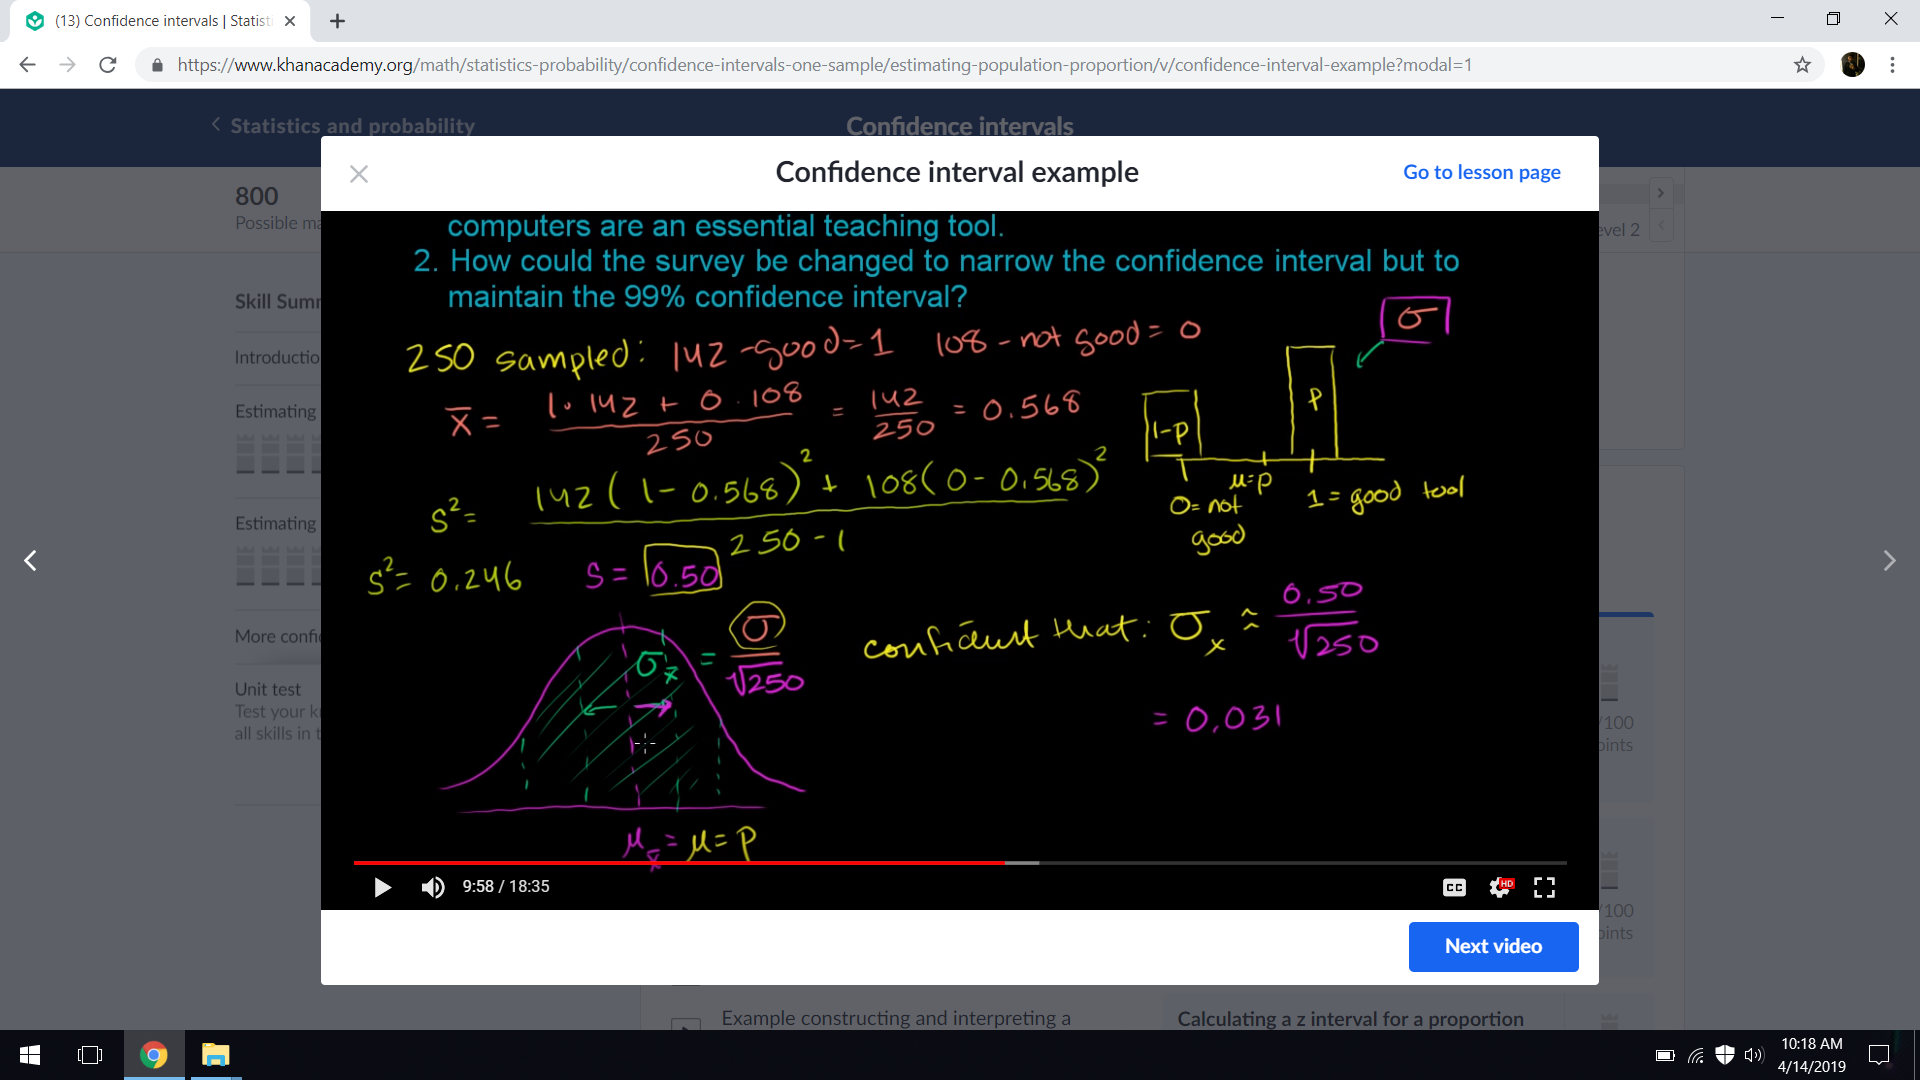 (13) Confidence intervals | Statist
https://www.khanacademy.org/math/statistics-probability/confidence-intervals-one-sample/estimating-population-proportion/v/confidence-interval-example?modal=1
Statistics and probability
Confidence intervals
Confidence interval example
Go to lesson page
800
Possible ma
evel 2
Skill Summ
Introductio
Estimating
Estimating
More confi
Unit test
Test your k
all skills in t
/100
oints
/100
oints
computers are an essential teaching tool.
2. How could the survey be changed to narrow the confidence interval but to
maintain the 99% confidence interval?
σ
250 sampled: 142 - good = 1 108 - not good = 0
x̄ = (1 · 142 + 0 · 108) / 250 = 142/250 = 0.568
1-p
p
μ=p
0 = not good
1 = good tool
S² = (142(1 - 0.568)² + 108(0 - 0.568)²) / (250 - 1)
S² = 0.246 S = 0.50
σx̄ = σ/√250
confident that: σx̄ ≈ 0.50/√250
= 0.031
μx̄ = μ = p
9:58 / 18:35
CC
HD
Next video
Example constructing and interpreting a
Calculating a z interval for a proportion
10:18 AM
4/14/2019